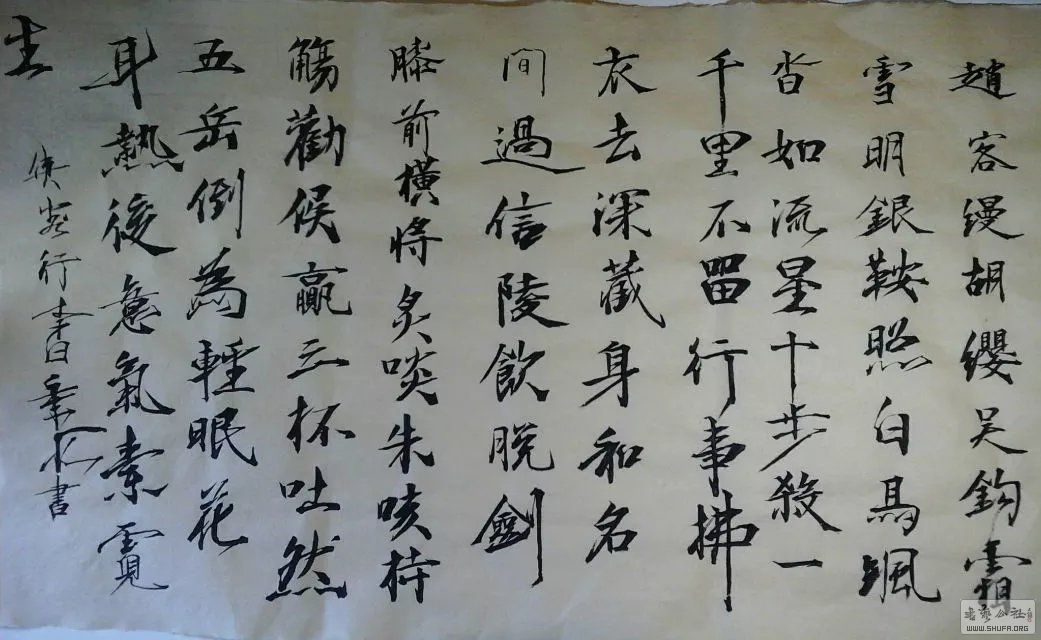 趙客缦胡纓吴鈎霜
雪明銀鞍照白馬颯
沓如流星十步殺一
千里不留行事拂
衣去深藏身和名
間過信陵飲脱劍
膝前横將炙啖朱咳持
觴勸候贏三杯吐然
五岳倒為輕眼花
耳熱後意氣素霓
生
侠客行李白 書
書藝公社
WWW.SHUFA.ORG